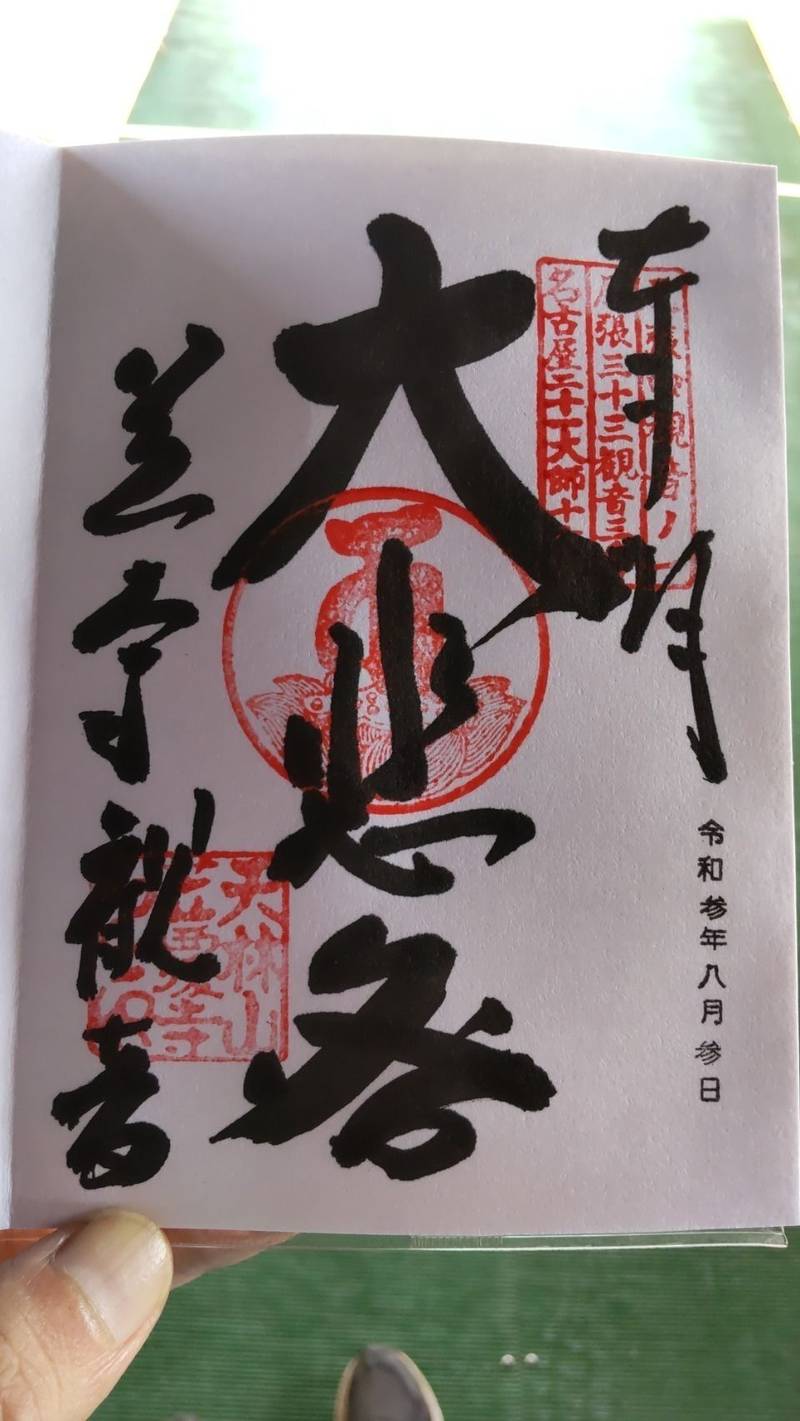 奉拝
令和参年八月参日
張四観音ノ一
張三十三観音三
名古屋二十一大師十
大悲閣
笠寺観音
天林山
笠覆寺